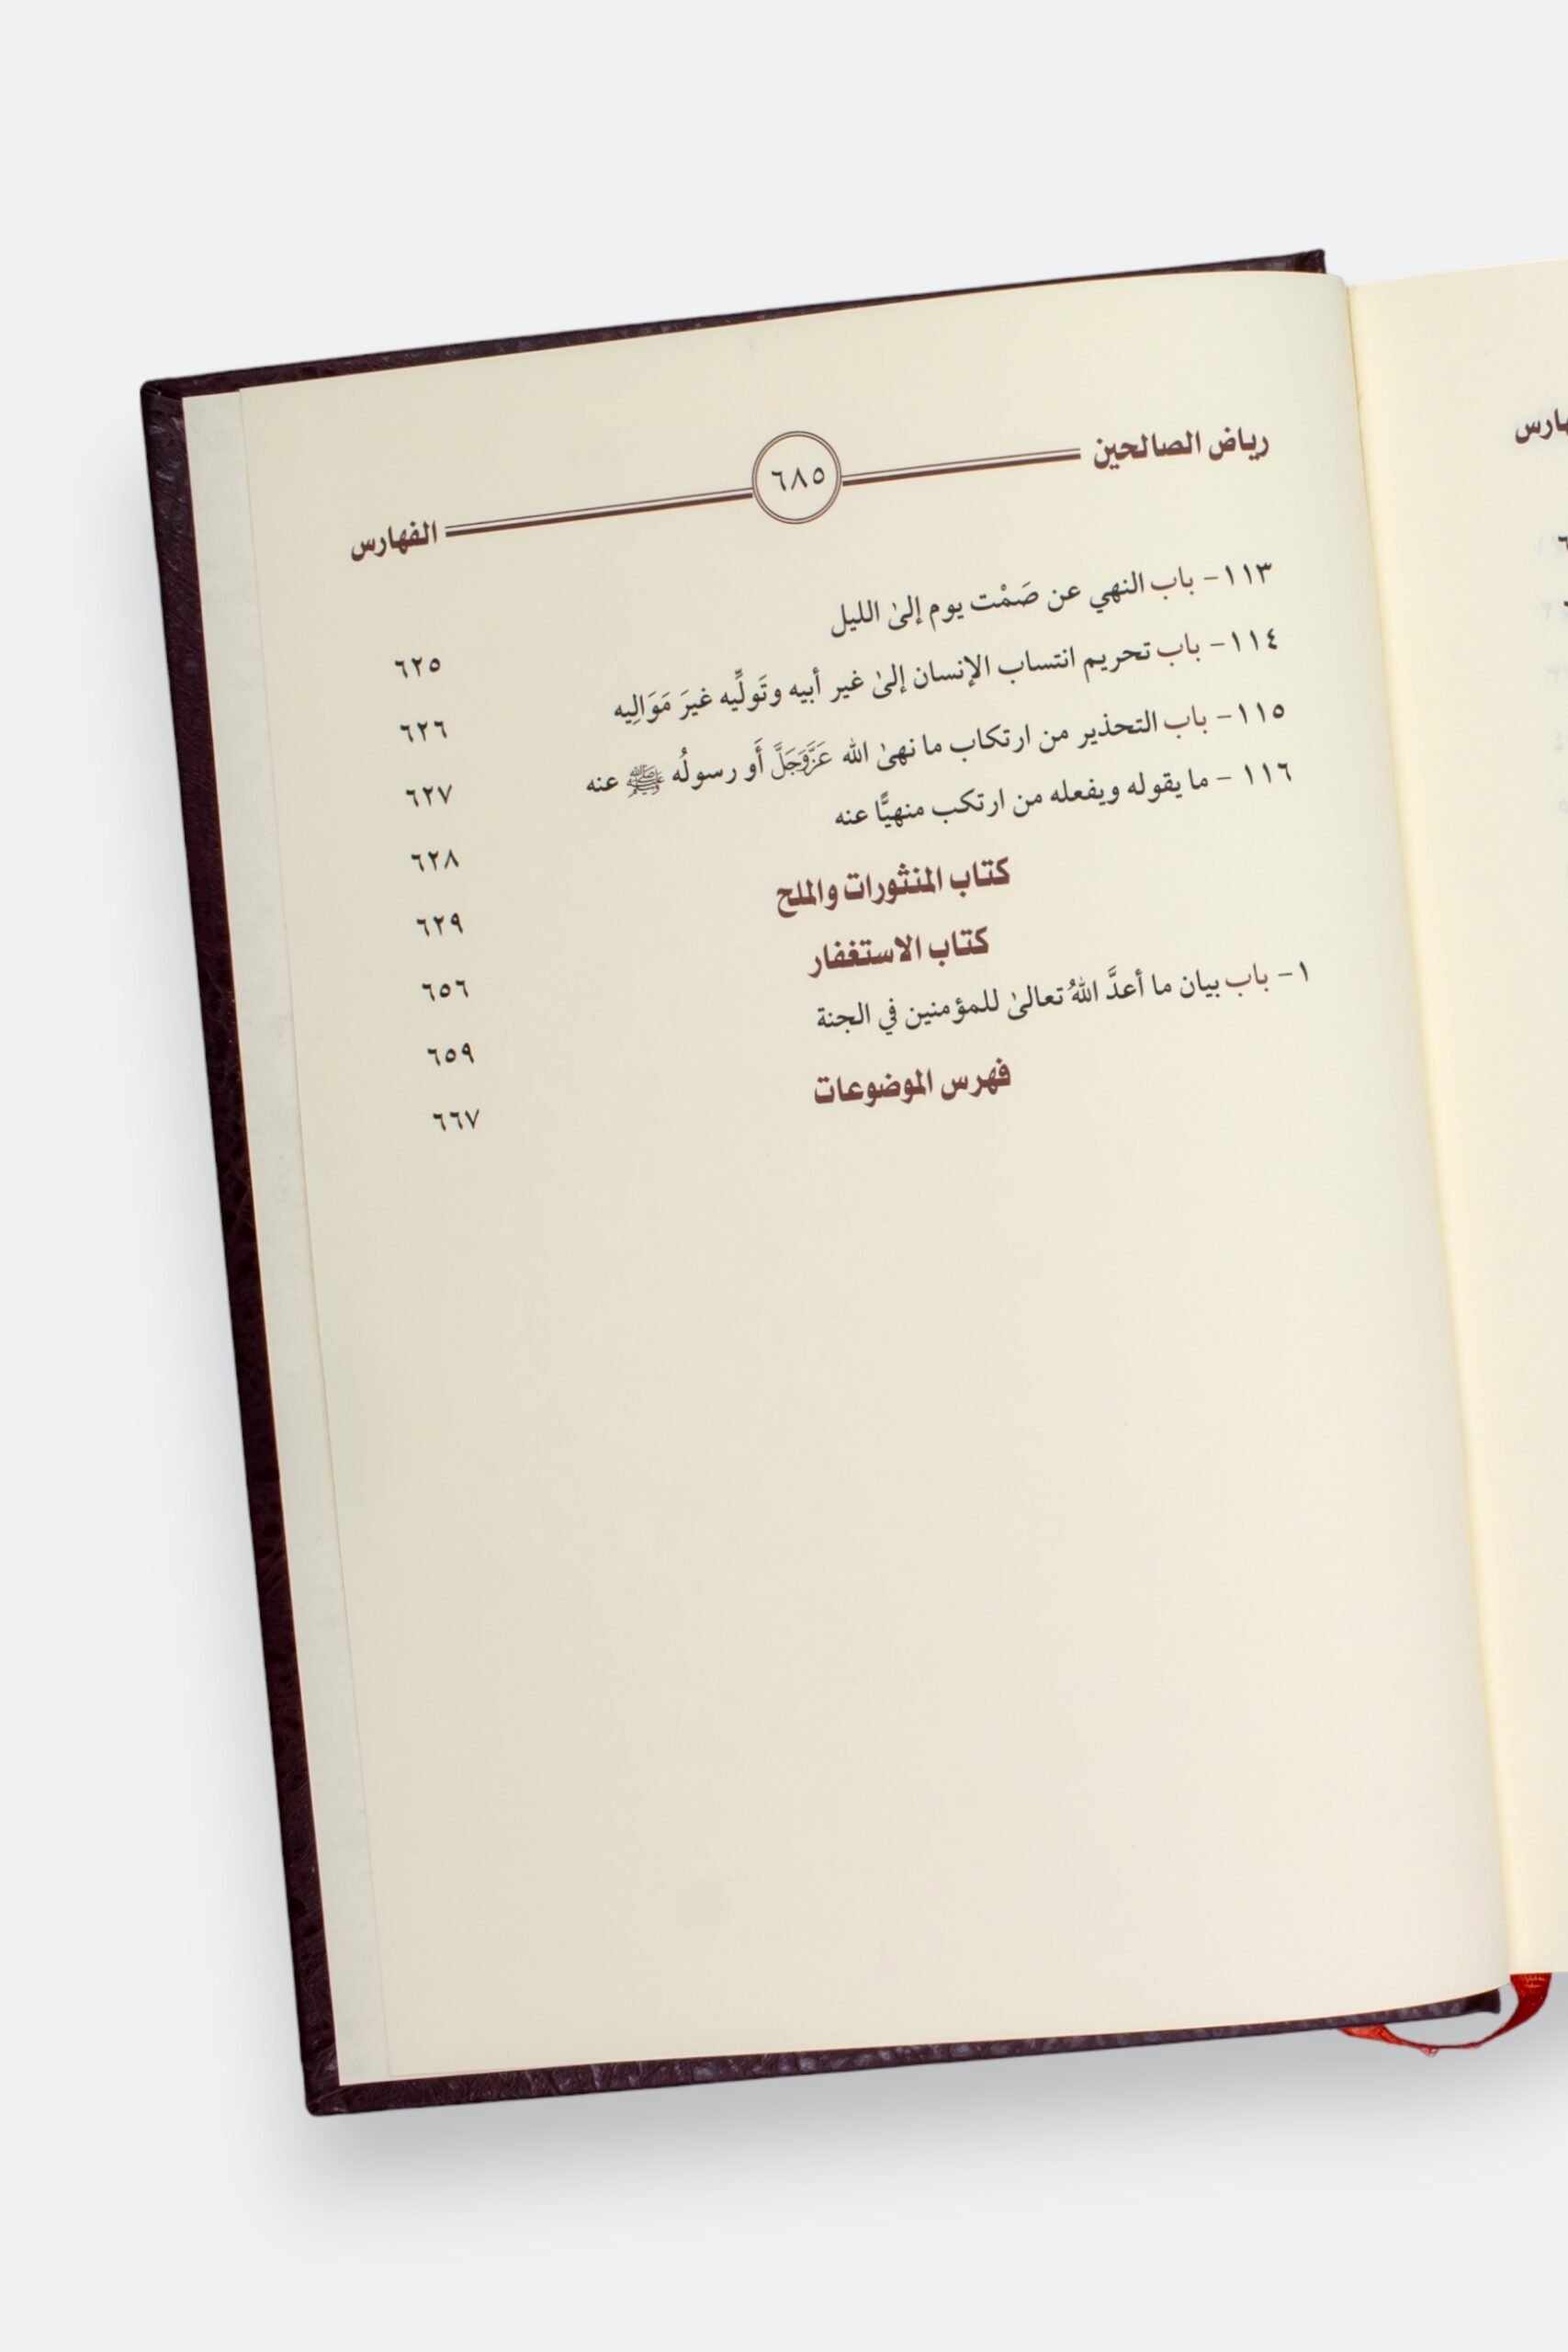 رياض الصالحين ٦٨٥ الفهارس
١١٣- باب النهي عن صَمْت يوم إلىٰ الليل ٦٢٥
١١٤- باب تحريم انتساب الإنسان إلىٰ غير أبيه وتَولِّيه غيرَ مَوَالِيه ٦٢٦
١١٥- باب التحذير من ارتكاب ما نهىٰ الله عَزَّوَجَلَّ أَو رسولُه ﷺ عنه ٦٢٧
١١٦ - ما يقوله ويفعله من ارتكب منهيًّا عنه ٦٢٨
كتاب المنثورات والملح ٦٢٩
كتاب الاستغفار ٦٥٦
١- باب بيان ما أعدَّ اللهُ تعالىٰ للمؤمنين في الجنة ٦٥٩
فهرس الموضوعات ٦٦٧